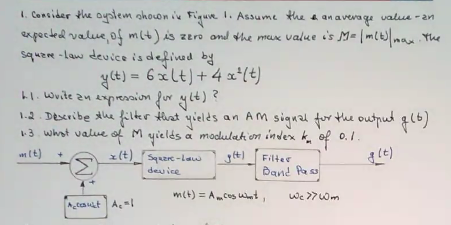 1. Consider the system shown in Figure 1. Assume the an average value - an
expected value, of m(t) is zero and the max value is M=|m(t)|max. The
square-law device is defined by
y(t) = 6x(t) + 4x²(t)
1.1. Write an expression for y(t) ?
1.2. Describe the filter that yields an AM signal for the output g(t)
1.3. What value of M yields a modulation index km of 0.1.
m(t) + Σ x(t) Square-Law y(t) Filter g(t)
device Band Pass
+
Ac cos ωct Ac=1 m(t) = Am cos ωmt, ωc >> ωm